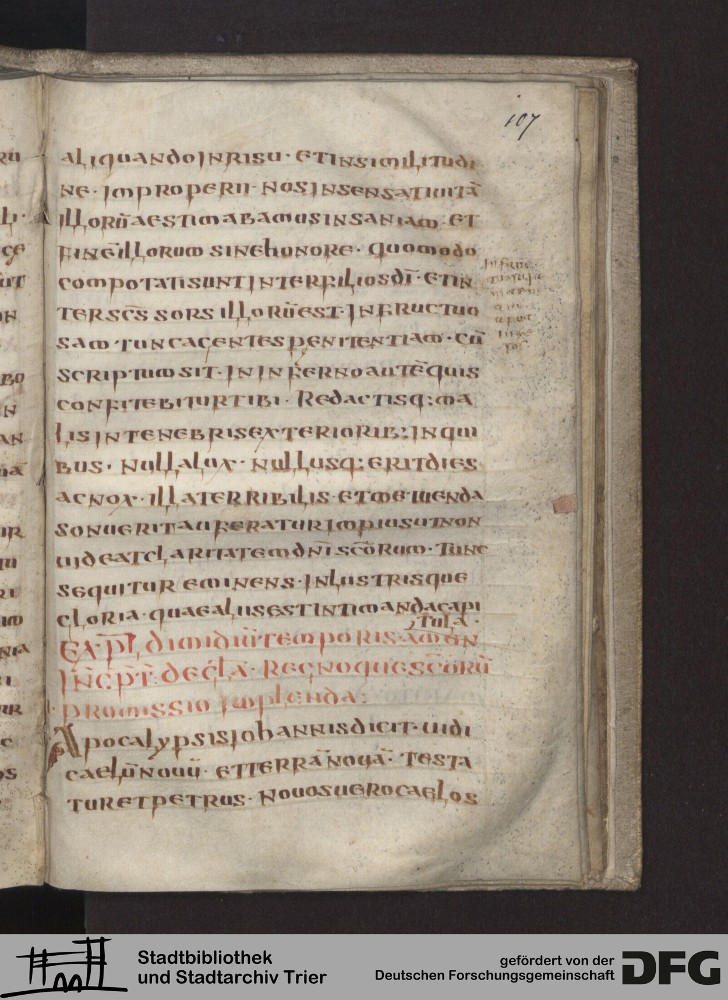 107
ALIQUANDOINRISU· ETINSIMILITUDI
NE· IMPROPERII· NOSINSENSATIUITĀ
ILLORŪAESTIMABAMUSINSANIAM· ET
FINĒILLORUM SINEHONORE· QUOMODO
COMPOTATISUNTINTERFILIOSDĪ· ETIN
TERSCŌS SORS ILLORŪEST· INFRUCTUO
SAM TUNCAGENTESPENITENTIAM· CŪ
SCRIPTUMSIT· ININFERNOAUTĒQUIS
CONFITEBITURTIBI· REDACTISQ:MA
LISINTENEBRISEXTERIORIB:INQUI
BUS· NULLALUX· NULLUSQ:ERITDIES
ACNOX· ILLATERRIBILIS· ETMETUENDA
SONUERITAUFERATURIMPIUSUTNON
UIDEATCLARITATEMDNĪSCŌRUM· TUNC
SEQUITUR EMINENS· INLUSTRISQUE
GLORIA· QUAEALIUSESTINTIMANDACAPI
TULA·
EXPL DIMIDIŪTEMPORIS·AMEN
INCPT· DECLA· REGNOQUESCŌRŪ
PROMISSIO IMPLENDA:
APOCALYPSISIOHANNISDICIT· UIDI
CAELŪNOUŪ· ETTERRĀNOUĀ· TESTA
TURETPETRUS· NOUOSUEROCAELOS
Stadtbibliothek
und Stadtarchiv Trier
gefördert von der
Deutschen Forschungsgemeinschaft
DFG